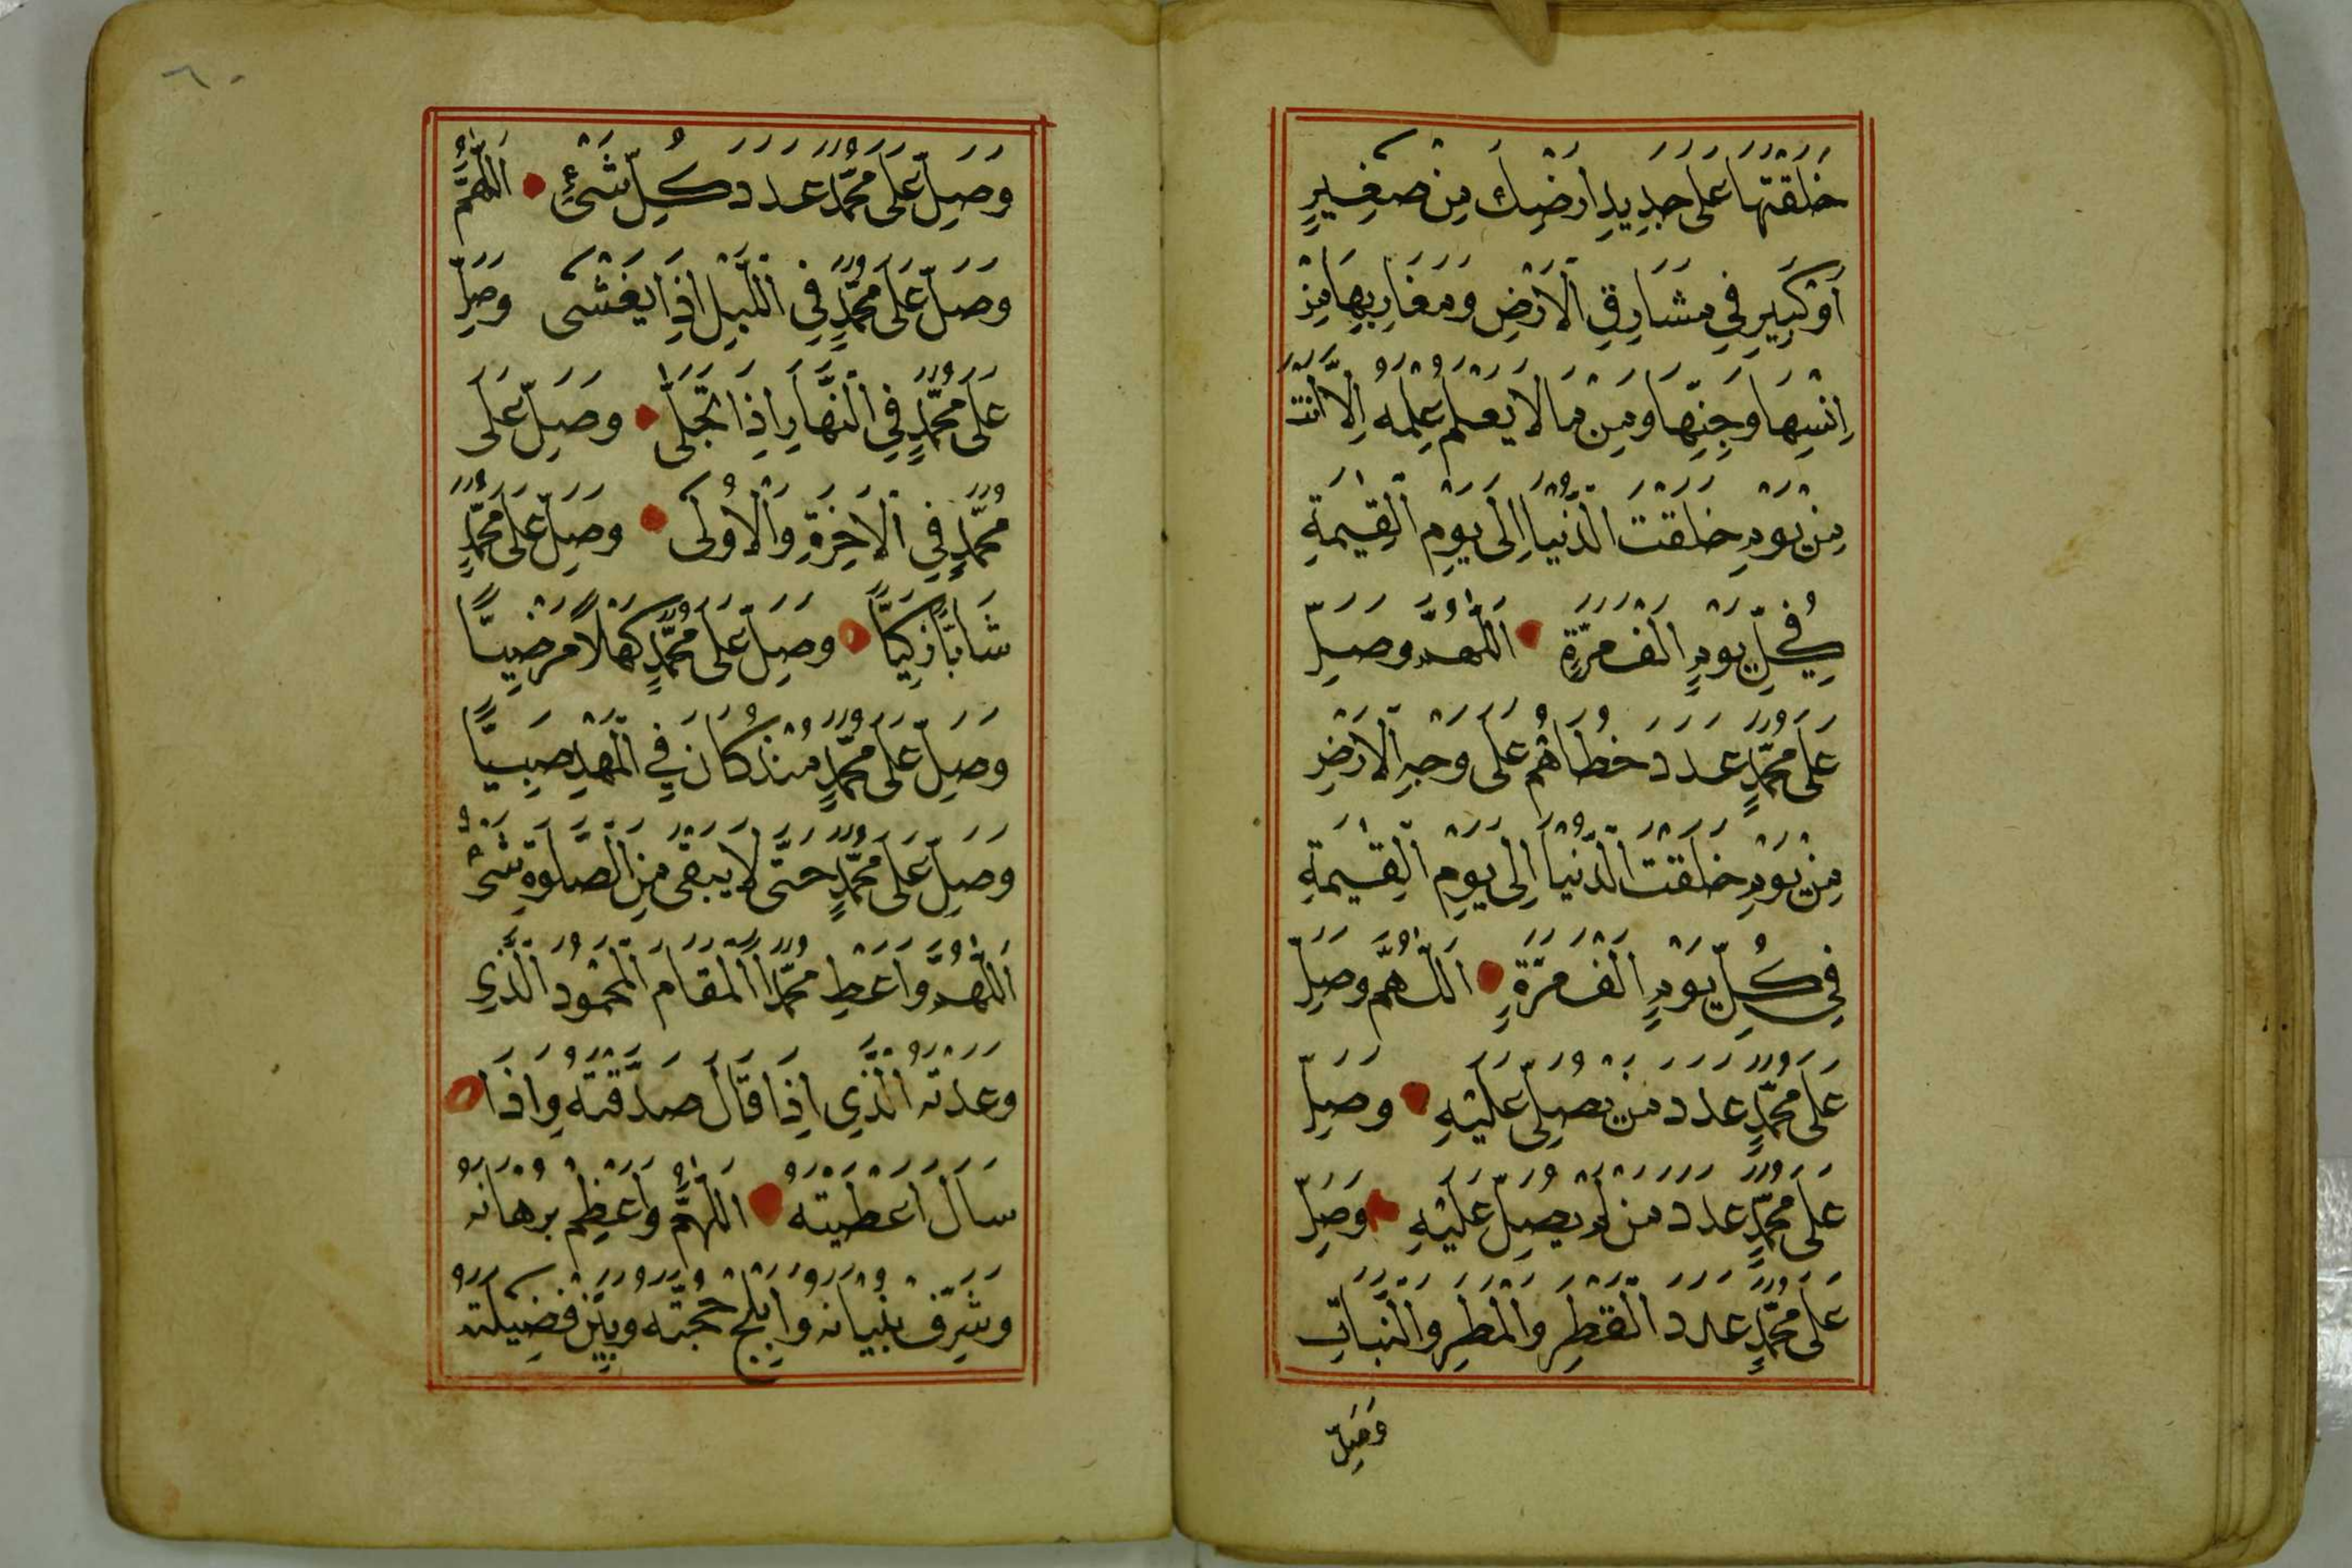 خَلَقْتَهَا عَلَى جَدِيدِ اَرْضِكَ مِنْ صَغِيرٍ
اَوْ كَبِيرٍ فِي مَشَارِقِ الْاَرْضِ وَمَغَارِبِهَا مِنْ
اِنْسِهَا وَجِنِّهَا وَمِنْ مَا لَا يَعْلَمُ عِلْمَهُ اِلَّا اَنْتَ
مِنْ يَوْمِ خَلَقْتَ الدُّنْيَا اِلَى يَوْمِ الْقِيٰمَةِ
فِي كُلِّ يَوْمٍ اَلْفَ مَرَّةٍ اَللّٰهُمَّ وَصَلِّ
عَلَى مُحَمَّدٍ عَدَدَ خُطَاهُمْ عَلَى وَجْهِ الْاَرْضِ
مِنْ يَوْمِ خَلَقْتَ الدُّنْيَا اِلَى يَوْمِ الْقِيٰمَةِ
فِي كُلِّ يَوْمٍ اَلْفَ مَرَّةٍ اَللّٰهُمَّ وَصَلِّ
عَلَى مُحَمَّدٍ عَدَدَ مَنْ يُصَلِّى عَلَيْهِ وَصَلِّ
عَلَى مُحَمَّدٍ عَدَدَ مَنْ لَمْ يُصَلِّ عَلَيْهِ وَصَلِّ
عَلَى مُحَمَّدٍ عَدَدَ الْقَطْرِ وَالْمَطَرِ وَالنَّبَاتِ
وَصَلِّ
٦٠
وَصَلِّ عَلَى مُحَمَّدٍ عَدَدَ كُلِّ شَيْءٍ اَللّٰهُمَّ
وَصَلِّ عَلَى مُحَمَّدٍ فِي اللَّيْلِ اِذَا يَغْشَى وَصَلِّ
عَلَى مُحَمَّدٍ فِي النَّهَارِ اِذَا تَجَلَّى وَصَلِّ عَلَى
مُحَمَّدٍ فِي الْاٰخِرَةِ وَالْاُولَى وَصَلِّ عَلَى مُحَمَّدٍ
شَابًّا زَكِيًّا وَصَلِّ عَلَى مُحَمَّدٍ كَهْلًا مَرْضِيًّا
وَصَلِّ عَلَى مُحَمَّدٍ مُنْذُ كَانَ فِي الْمَهْدِ صَبِيًّا
وَصَلِّ عَلَى مُحَمَّدٍ حَتَّى لَا يَبْقَى مِنَ الصَّلٰوةِ شَيْءٌ
اَللّٰهُمَّ وَاَعْطِ مُحَمَّدًا الْمَقَامَ الْمَحْمُودَ الَّذِي
وَعَدْتَهُ الَّذِي اِذَا قَالَ صَدَّقْتَهُ وَاِذَا
سَاَلَ اَعْطَيْتَهُ اَللّٰهُمَّ وَاَعْظِمْ بُرْهَانَهُ
وَشَرِّفْ بُنْيَانَهُ وَاَبْلِجْ حُجَّتَهُ وَبَيِّنْ فَضِيلَتَهُ